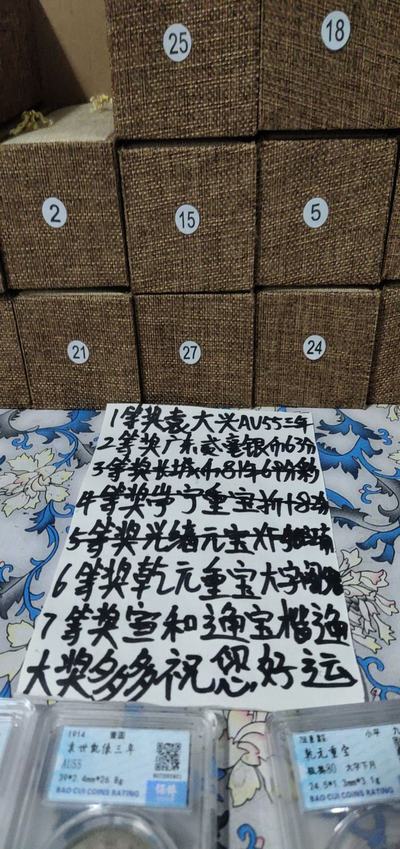 25
18
2
15
5
21
27
24
1等奖袁大兴AU55三年
2等奖广东
3等奖长城
4等奖崇宁重宝折十82
5等奖光绪元宝
6等奖乾元重宝大字
7等奖宣和通宝楷通
大奖多多祝您好运
1914 壹圆
袁世凯像三年
AU55
39*2.4mm*26.8g
BAO CUI COINS RATING
小平
乾元重宝
极美80 大字下月
24.5*1.3mm*3.1g
BAO CUI COINS RATING